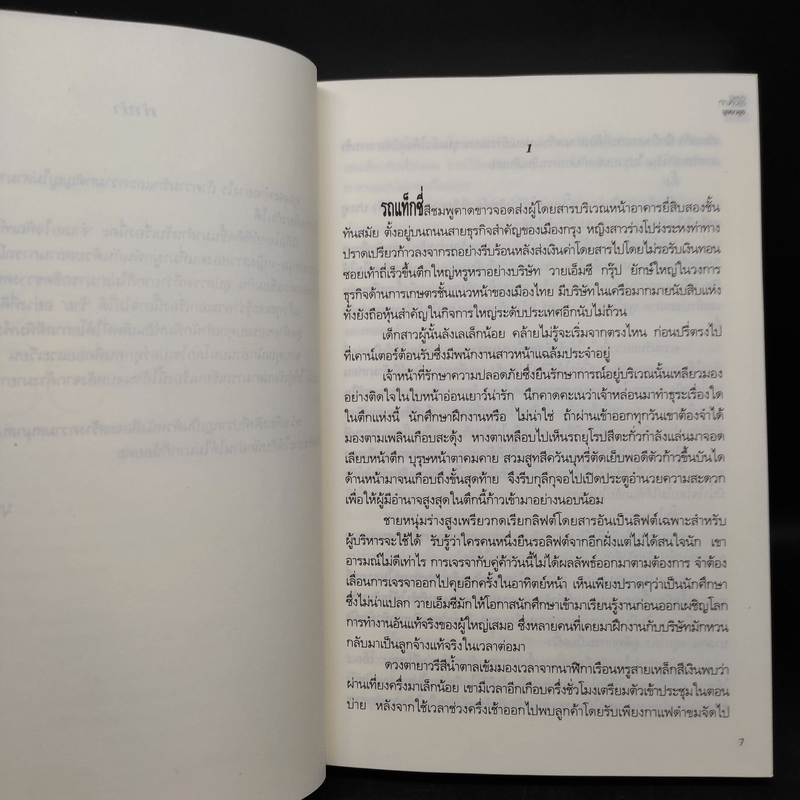 คำนำ
1
รถแท็กซี่สีชมพูคาดขาวจอดส่งผู้โดยสารบริเวณหน้าอาคารยี่สิบสองชั้น
ทันสมัย ตั้งอยู่บนถนนสายธุรกิจสำคัญของเมืองกรุง หญิงสาวร่างโปร่งระหงท่าทาง
ปราดเปรียวก้าวลงจากรถอย่างรีบร้อนหลังส่งเงินค่าโดยสารไปโดยไม่รอรับเงินทอน
ซอยเท้าถี่เร็วขึ้นตึกใหญ่หรูหราอย่างบริษัท วายเอ็มซี กรุ๊ป ยักษ์ใหญ่ในวงการ
ธุรกิจด้านการเกษตรชั้นแนวหน้าของเมืองไทย มีบริษัทในเครือมากมายนับสิบแห่ง
ทั้งยังถือหุ้นสำคัญในกิจการใหญ่ระดับประเทศอีกนับไม่ถ้วน
เด็กสาวผู้นั้นลังเลเล็กน้อย คล้ายไม่รู้จะเริ่มจากตรงไหน ก่อนปรี่ตรงไป
ที่เคาน์เตอร์ต้อนรับซึ่งมีพนักงานสาวหน้าแฉล้มประจำอยู่
เจ้าหน้าที่รักษาความปลอดภัยซึ่งยืนรักษาการณ์อยู่บริเวณนั้นเหลียวมอง
อย่างติดใจในใบหน้าอ่อนเยาว์น่ารัก นึกคาดคะเนว่าเจ้าหล่อนมาทำธุระเรื่องใด
ในตึกแห่งนี้ นักศึกษาฝึกงานหรือ ไม่น่าใช่ ถ้าผ่านเข้าออกทุกวันเขาต้องจำได้
มองตามเพลินเกือบสะดุ้ง หางตาเหลือบไปเห็นรถยุโรปสีตะกั่วกำลังแล่นมาจอด
เลียบหน้าตึก บุรุษหน้าตาคมคาย สวมสูทสีควันบุหรี่ตัดเย็บพอดีตัวก้าวขึ้นบันได
ด้านหน้ามาจนเกือบถึงขั้นสุดท้าย จึงรีบกุลีกุจอไปเปิดประตูอำนวยความสะดวก
เพื่อให้ผู้มีอำนาจสูงสุดในตึกนี้ก้าวเข้ามาอย่างนอบน้อม
ชายหนุ่มร่างสูงเพรียวกดเรียกลิฟต์โดยสารอันเป็นลิฟต์เฉพาะสำหรับ
ผู้บริหารจะใช้ได้ รับรู้ว่าใครคนหนึ่งยืนรอลิฟต์จากอีกฝั่งแต่ไม่ได้สนใจนัก เขา
อารมณ์ไม่ดีเท่าไร การเจรจากับคู่ค้าวันนี้ไม่ได้ผลลัพธ์ออกมาตามต้องการ จำต้อง
เลื่อนการเจรจาออกไปคุยอีกครั้งในอาทิตย์หน้า เห็นเพียงปราดๆว่าเป็นนักศึกษา
ซึ่งไม่น่าแปลก วายเอ็มซีมักให้โอกาสนักศึกษาเข้ามาเรียนรู้งานก่อนออกเผชิญโลก
การทำงานอันแท้จริงของผู้ใหญ่เสมอ ซึ่งหลายคนที่เคยมาฝึกงานกับบริษัทมักหวน
กลับมาเป็นลูกจ้างแท้จริงในเวลาต่อมา
ดวงตายาวรีสีน้ำตาลเข้มมองเวลาจากนาฬิกาเรือนหรูสายเหล็กสีเงินพบว่า
ผ่านเที่ยงครึ่งมาเล็กน้อย เขามีเวลาอีกเกือบครึ่งชั่วโมงเตรียมตัวเข้าประชุมในตอน
บ่าย หลังจากใช้เวลาช่วงครึ่งเช้าออกไปพบลูกค้าโดยรับเพียงกาแฟดำขมจัดไป
7